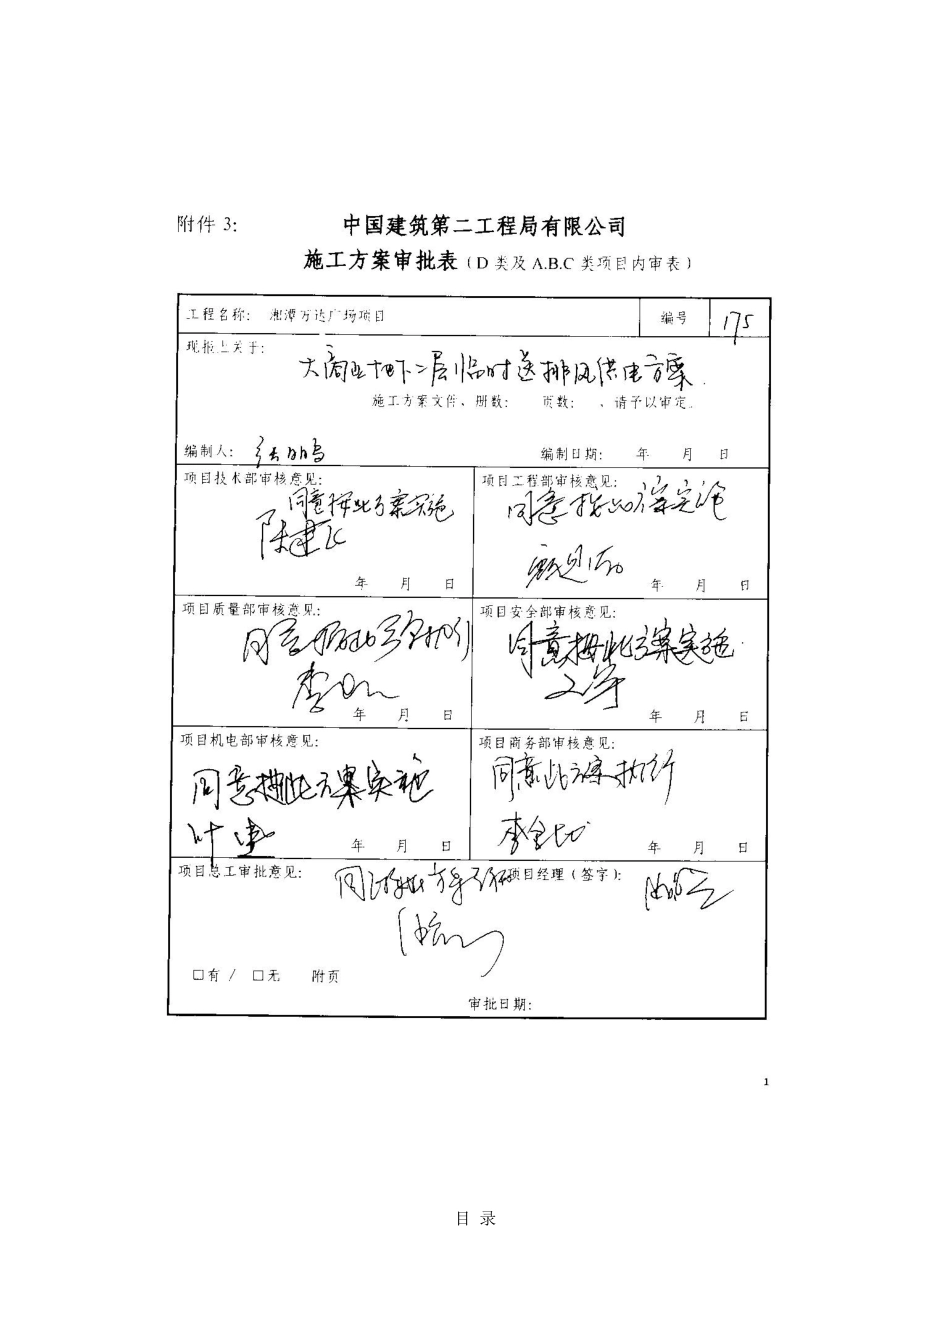 附件 3: 中国建筑第二工程局有限公司
施工方案审批表（D 类及 A.B.C 类项目内审表）
工程名称: 湘潭万达广场项目 编号 175
现报上关于:
大商业地下二层临时送排风供电方案.
施工方案文件、册数: 页数: 、请予以审定。
编制人: 编制日期: 年 月 日
项目技术部审核意见: 项目工程部审核意见:
同意按此方案实施 同意按此方案实施
陈建飞
年 月 日 年 月 日
项目质量部审核意见: 项目安全部审核意见:
同意按此方案执行 同意按此方案实施.
年 月 日 年 月 日
项目机电部审核意见: 项目商务部审核意见:
同意按此方案实施 同意此方案执行
年 月 日 年 月 日
项目总工审批意见: 项目经理（签字）:
□有 / □无 附页
审批日期:
1
目 录